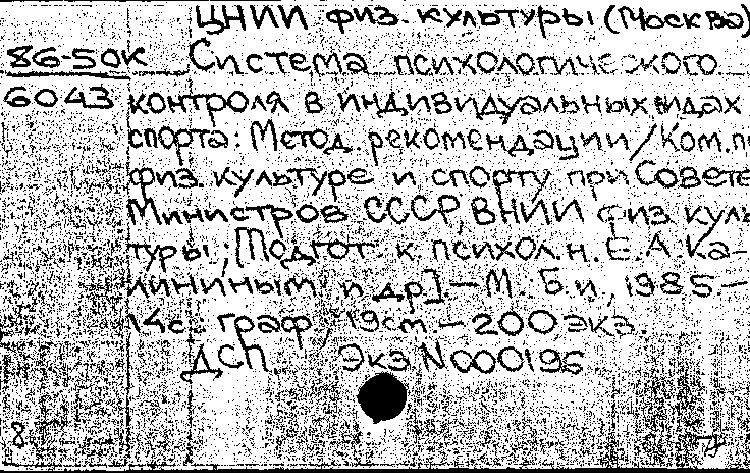 ЦНИИ физ. культуры (Москва)
86-50к Система психологического
6043 контроля в индивидуальных видах
спорта: Метод. рекомендации / Ком. по
физ. культуре и спорту при Совете
Министров СССР, ВНИИ физ. куль
туры; [Подгот. к. психол. н. Е. А. Ка-
лининым и др.]. — М.: Б. и., 1985. —
14 с. граф; 19 cm — 200 экз.
ДСП. Экз N 000196
8